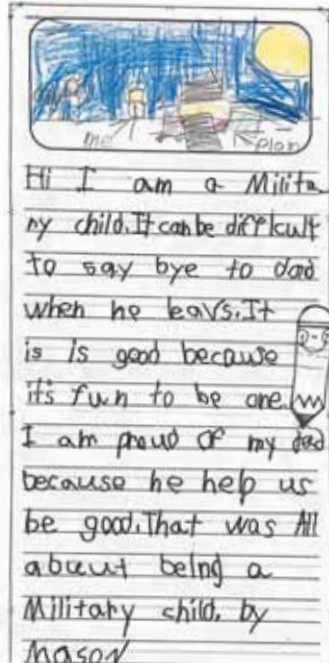 me plan
Hi I am a Milita
ry child. It can be difficult
to say bye to dad
when he leavs. It
is is good because
it's fun to be one
I am proud of my dad
because he help us
be good. That was All
abuut being a
Military child. by
Mason